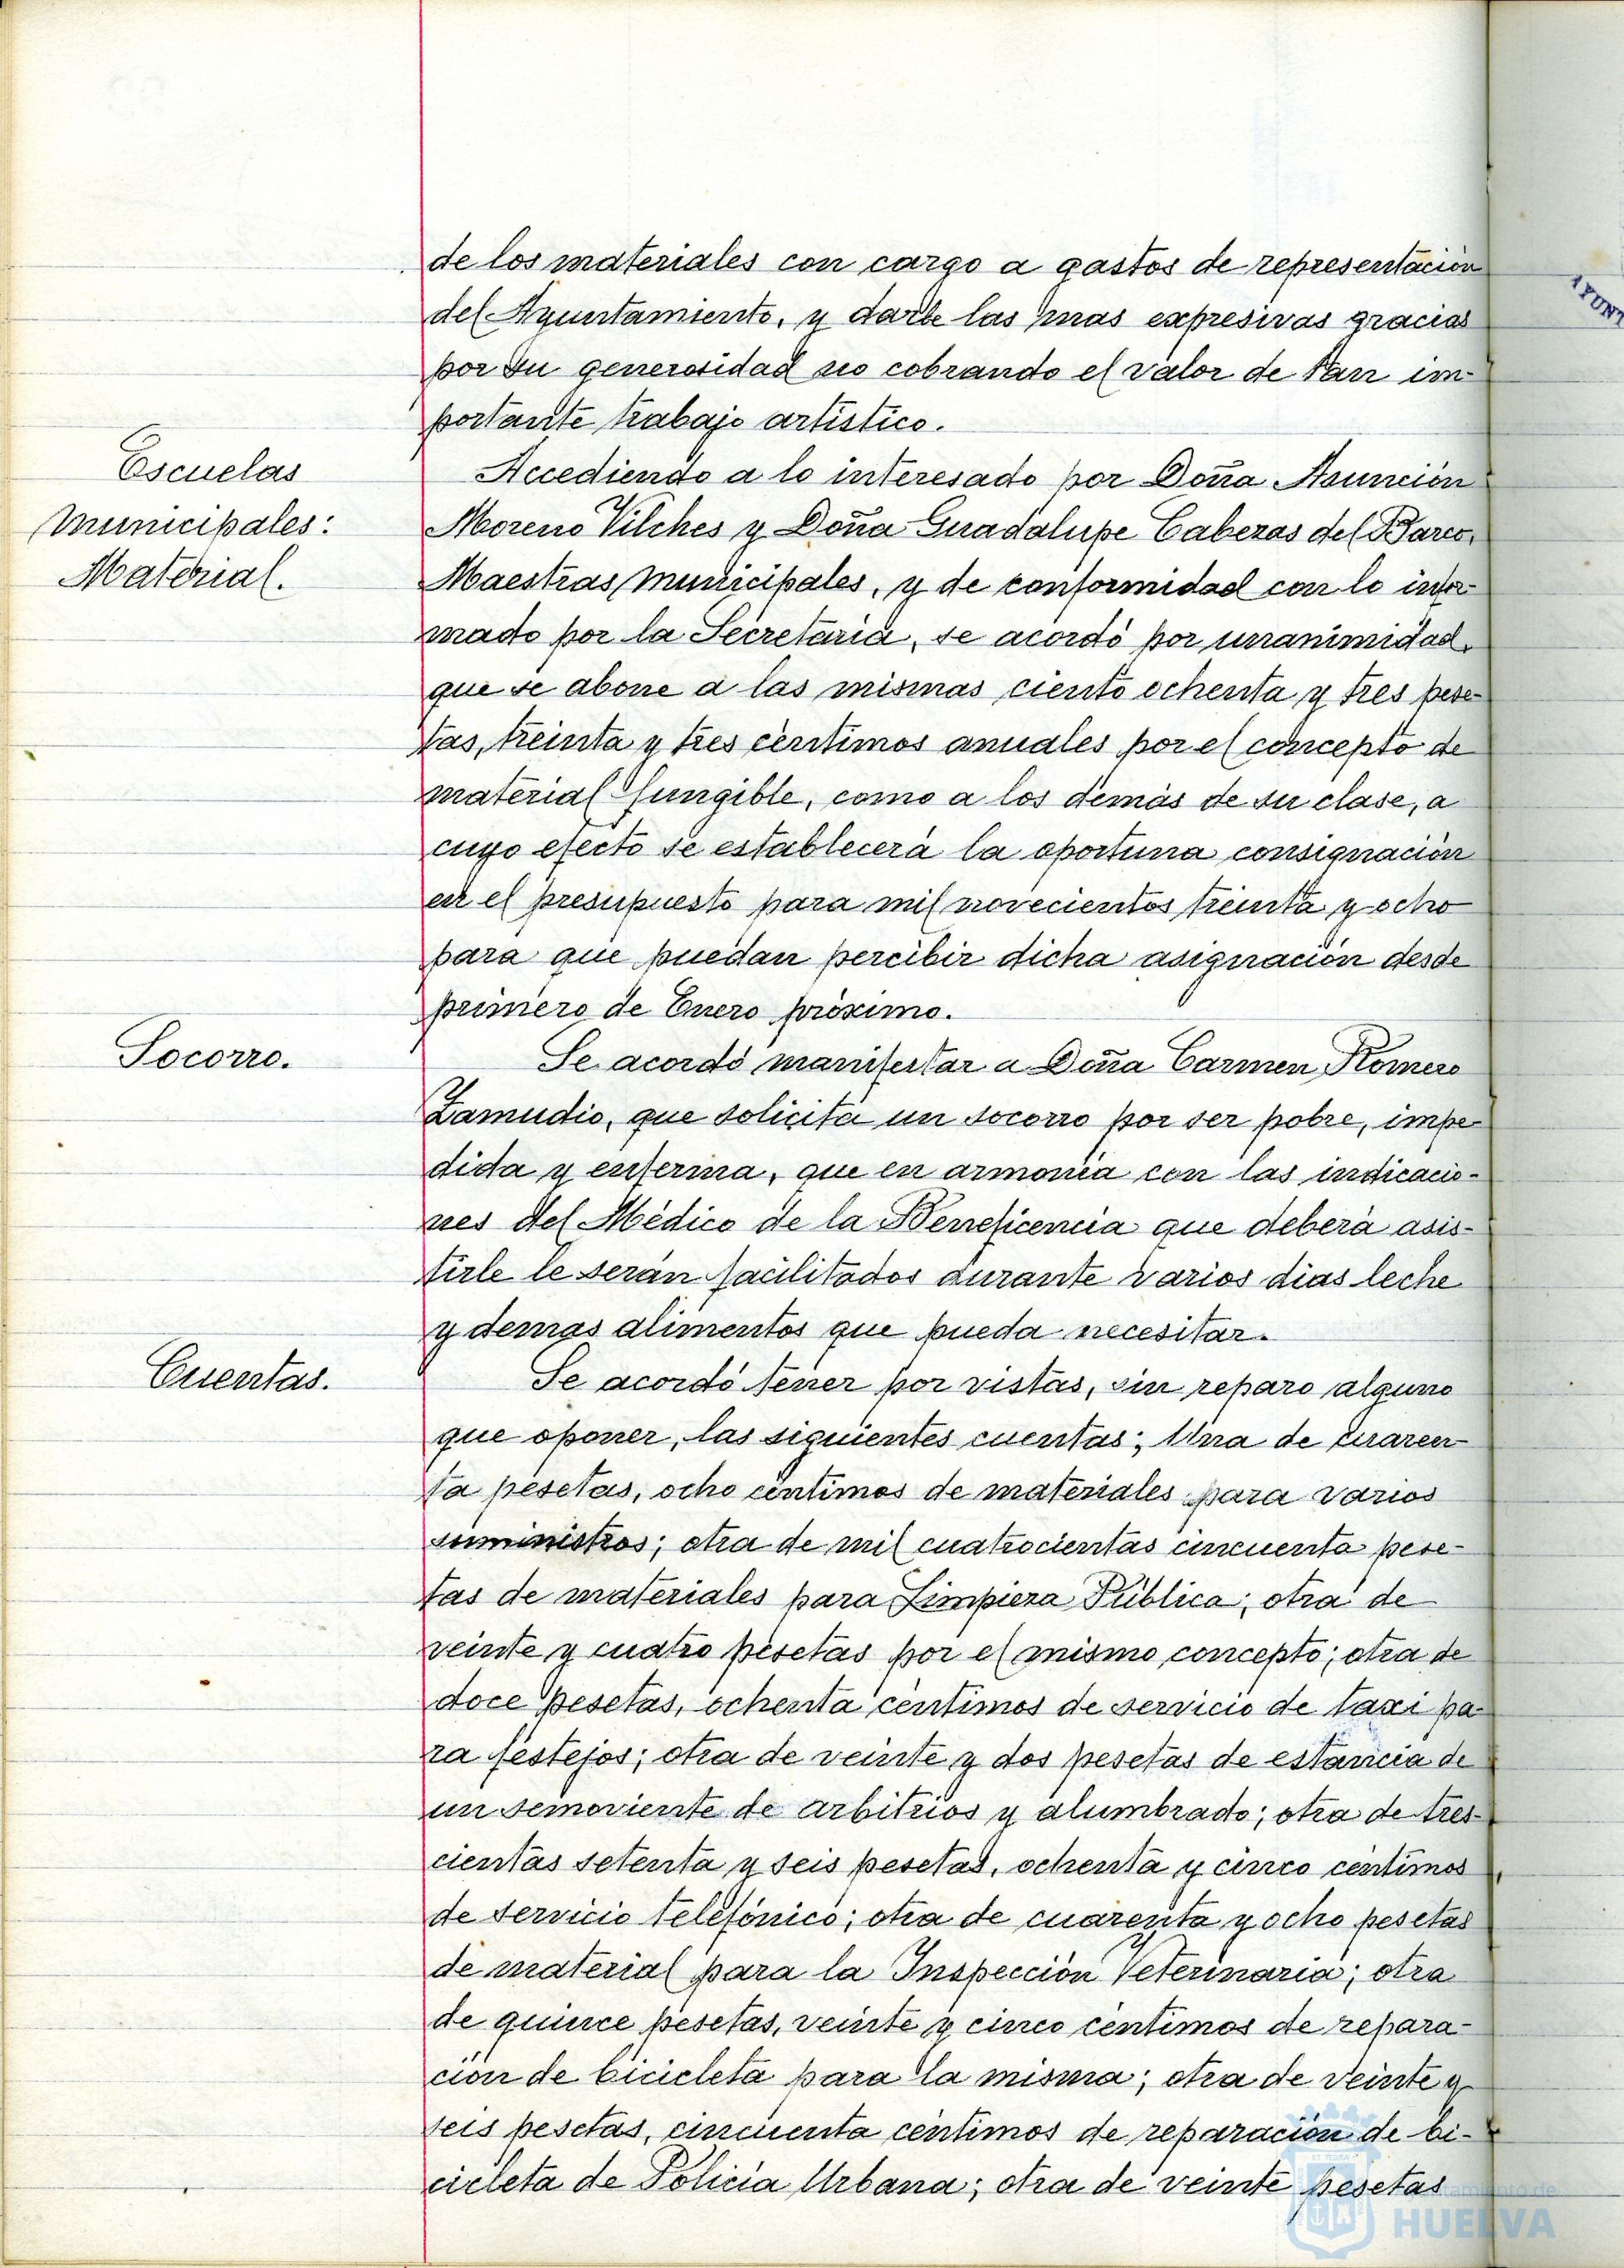 de los materiales con cargo a gastos de representación
del Ayuntamiento, y darle las mas expresivas gracias
por su generosidad no cobrando el valor de tan im-
portante trabajo artístico.
Escuelas
Municipales:
Material.
Accediendo a lo interesado por Doña Asunción
Moreno Vilches y Doña Guadalupe Cabezas del Barco,
Maestras Municipales, y de conformidad con lo infor-
mado por la Secretaria, se acordó por unanimidad,
que se abone a las mismas ciento ochenta y tres pese-
tas, treinta y tres céntimos anuales por el concepto de
material fungible, como a los demás de su clase, a
cuyo efecto se establecerá la oportuna consignación
en el presupuesto para mil novecientos treinta y ocho
para que puedan percibir dicha asignación desde
primero de Enero próximo.
Socorro.
Se acordó manifestar a Doña Carmen Romero
Zamudio, que solicita un socorro por ser pobre, impe-
dida y enferma, que en armonía con las indicacio-
nes del Médico de la Beneficencia que deberá asis-
tirle le serán facilitados durante varios dias leche
y demas alimentos que pueda necesitar.
Cuentas.
Se acordó tener por vistas, sin reparo alguno
que oponer, las siguientes cuentas; Una de cuaren-
ta pesetas, ocho céntimos de materiales para varios
suministros; otra de mil cuatrocientas cincuenta pese-
tas de materiales para Limpieza Pública; otra de
veinte y cuatro pesetas por el mismo concepto; otra de
doce pesetas, ochenta céntimos de servicio de taxi pa-
ra festejos; otra de veinte y dos pesetas de estancia de
un semoviente de arbitrios y alumbrado; otra de tres-
cientas setenta y seis pesetas, ochenta y cinco céntimos
de servicio telefónico; otra de cuarenta y ocho pesetas
de material para la Inspección Veterinaria; otra
de quince pesetas, veinte y cinco céntimos de repara-
ción de bicicleta para la misma; otra de veinte y
seis pesetas, cincuenta céntimos de reparación de bi-
cicleta de Policía Urbana; otra de veinte pesetas
HUELVA